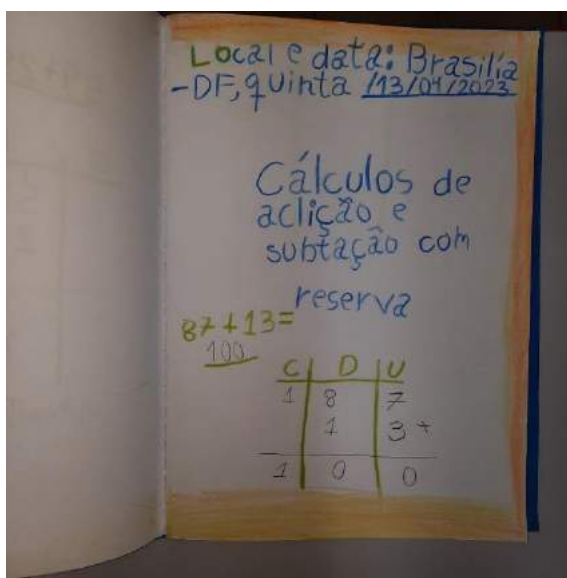 Local e data: Brasília
-DF, quinta 13/04/2023
Cálculos de
aclição e
subtação com
reserva
87+13=
100
C D U
1 8 7
1 3 +
1 0 0